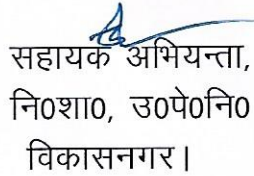 सहायक अभियन्ता,
नि0शा0, उ0पे0नि0
विकासनगर।